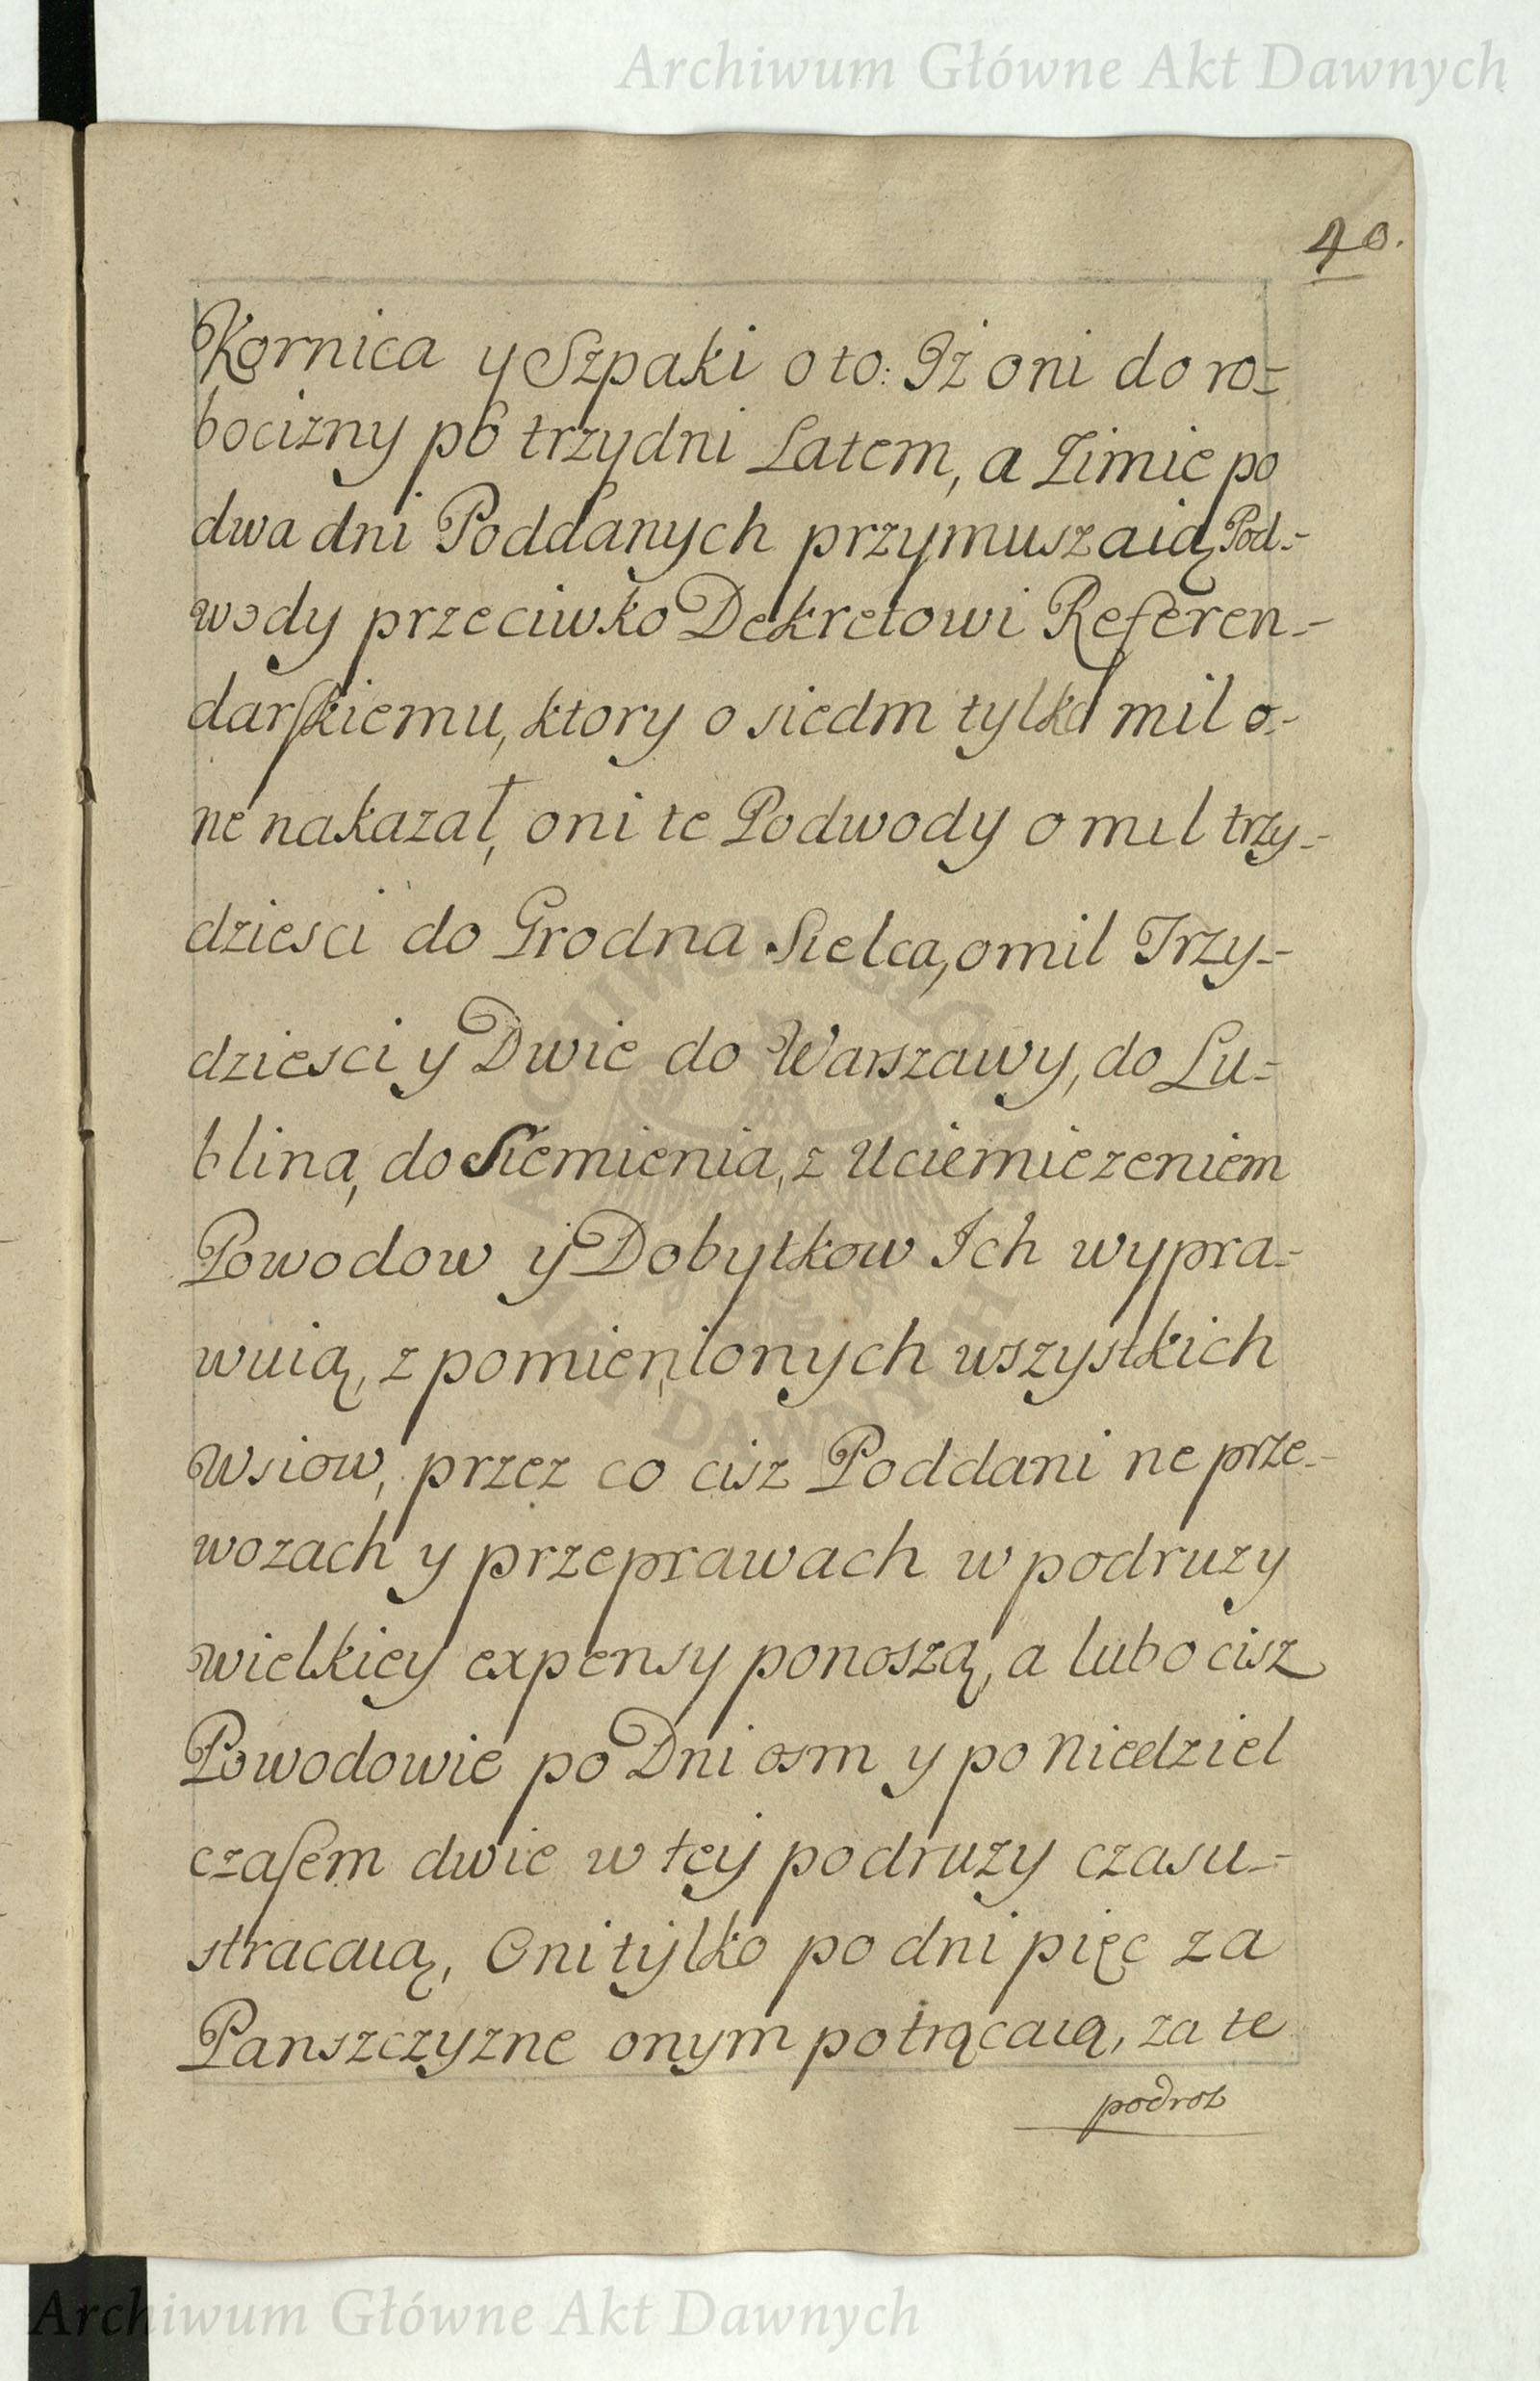 Archiwum Główne Akt Dawnych
40.
Kornica y Szpaki o to: Iż oni do ro-
bocizny po trzy dni Latem, a Zimie po
dwa dni Poddanych przymuszaią Pod-
wody przeciwko Dekretowi Referen-
darskiemu, ktory o siedm tylko mil o-
ne nakazał, oni te Podwody o mil trzy-
dziesci do Grodna Sielca, o mil Trzy-
dziesci y Dwie do Warszawy, do Lu-
blina, do Siemienia, z Uciemiezeniem
Powodow y Dobytkow Ich wypra-
wuią, z pomienionych wszystkich
Wsiow, przez co cisz Poddani ne prze-
wozach y przeprawach w podruzy
wielkiey expensy ponoszą, a lubo cisz
Powodowie po Dni osm y po Niedziel
czasem dwie w tey podruzy czasu-
stracaią, Oni tylko po dni pięc za
Panszczyzne onym potrącaią, za te
podroz
Archiwum Główne Akt Dawnych